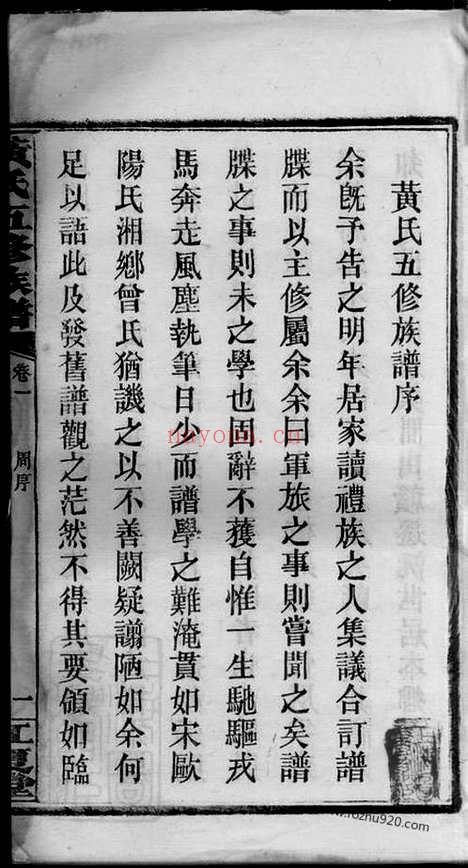 黃氏五修族譜序
余既予告之明年居家讀禮族之人集議合訂譜
牒而以主修屬余余曰軍旅之事則嘗聞之矣譜
牒之事則未之學也固辭不獲自惟一生馳驅戎
馬奔走風塵執筆日少而譜學之難淹貫如宋歐
陽氏湘鄉曾氏猶譏之以不善闕疑謭陋如余何
足以語此及發舊譜觀之茫然不得其要領如臨
黃氏五修族譜
卷一
周序
一
江夏堂
nayona.cn
www.fozhu920.com